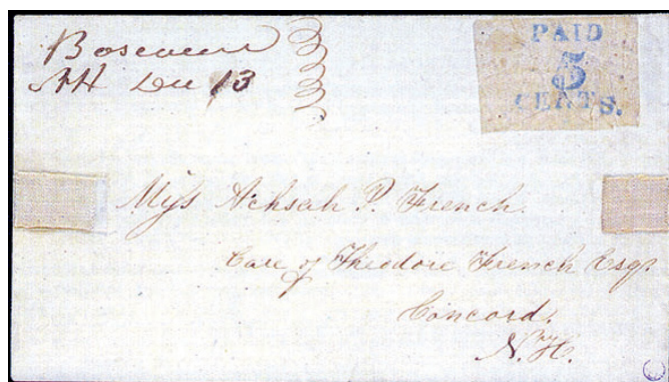 Boscawen
NH Dec 13
PAID
5
CENTS.
Miss Achsah P. French.
Care of Theodore French Esqr
Concord,
N.H.